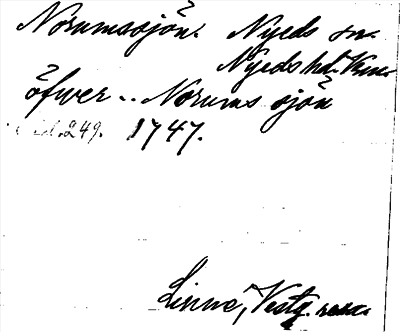 Norumssjön. Nyeds sn.
Nyeds hd. Vrml.
öfver .. Norums sjön
sid. 249. 1747.
Linné, Vestg. resa.